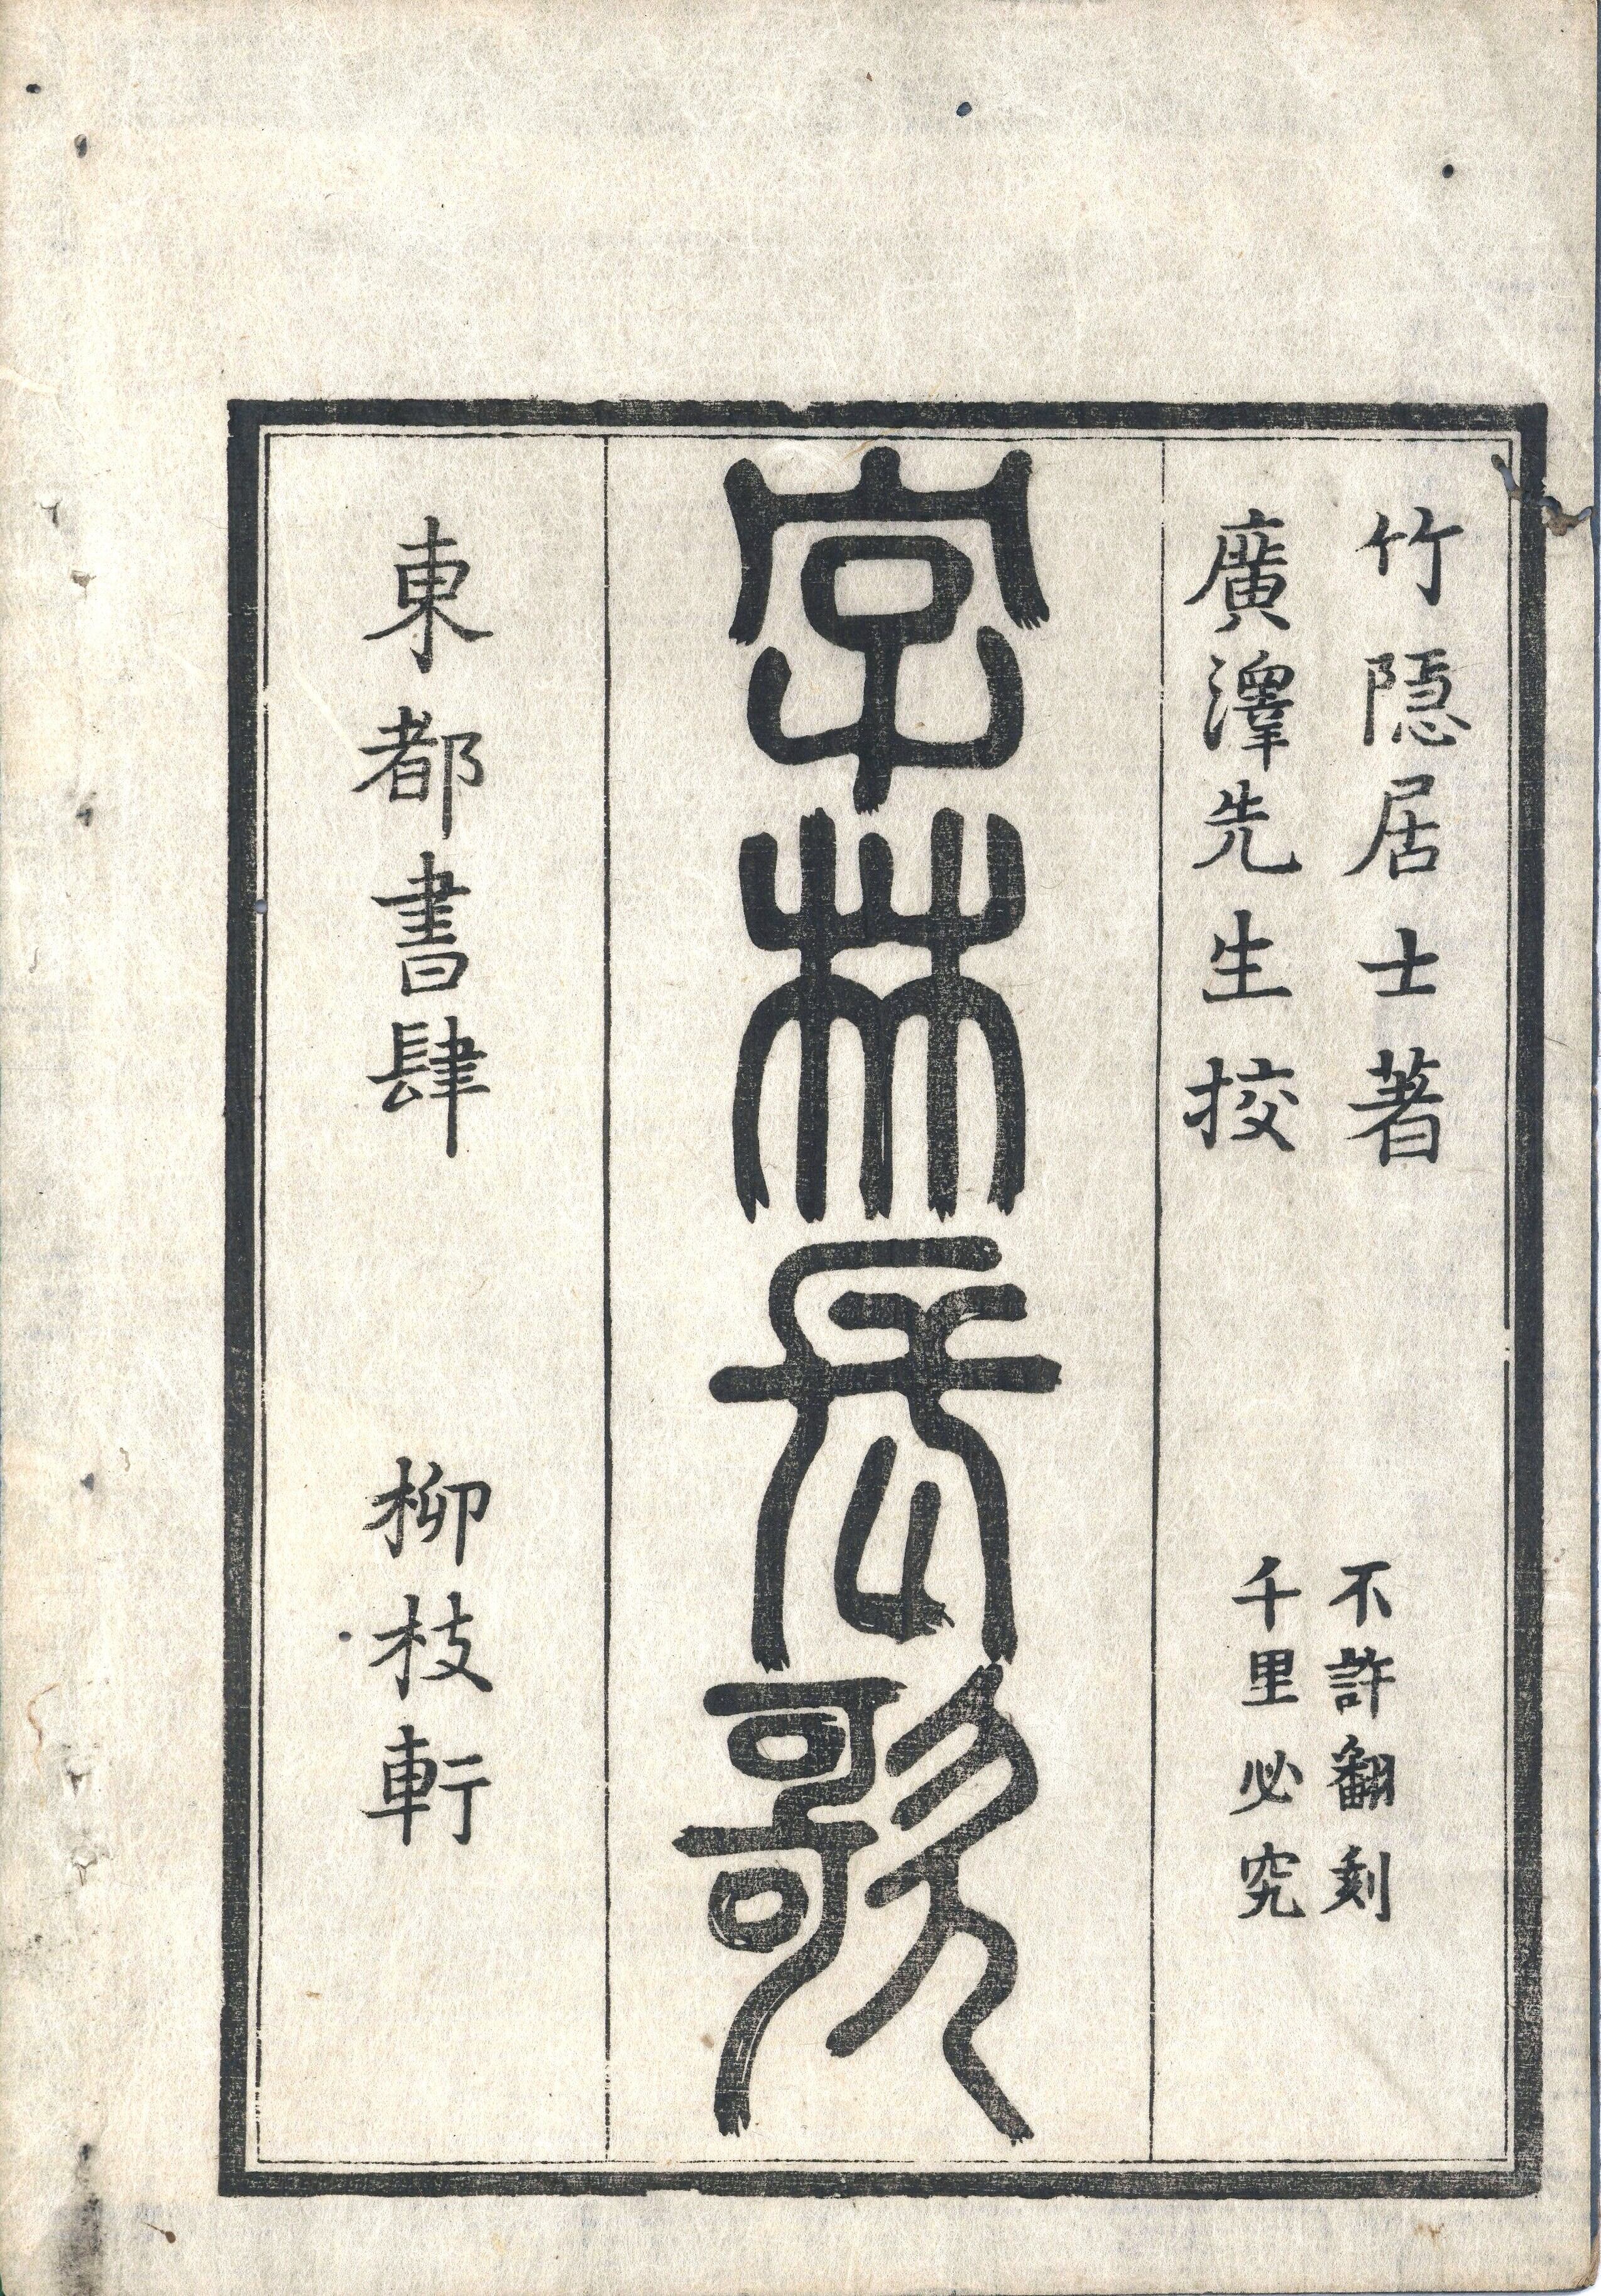 竹隠居士著
廣澤先生挍
不許翻刻
千里必究
字林長歌
東都書肆 柳枝軒